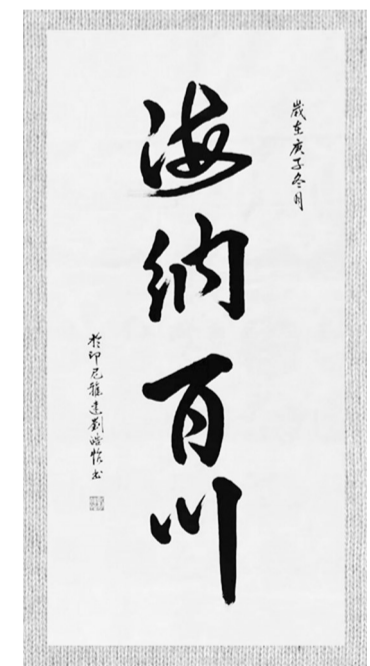 歲在庚子冬月
海納百川
於印尼雅達劉皓怡書